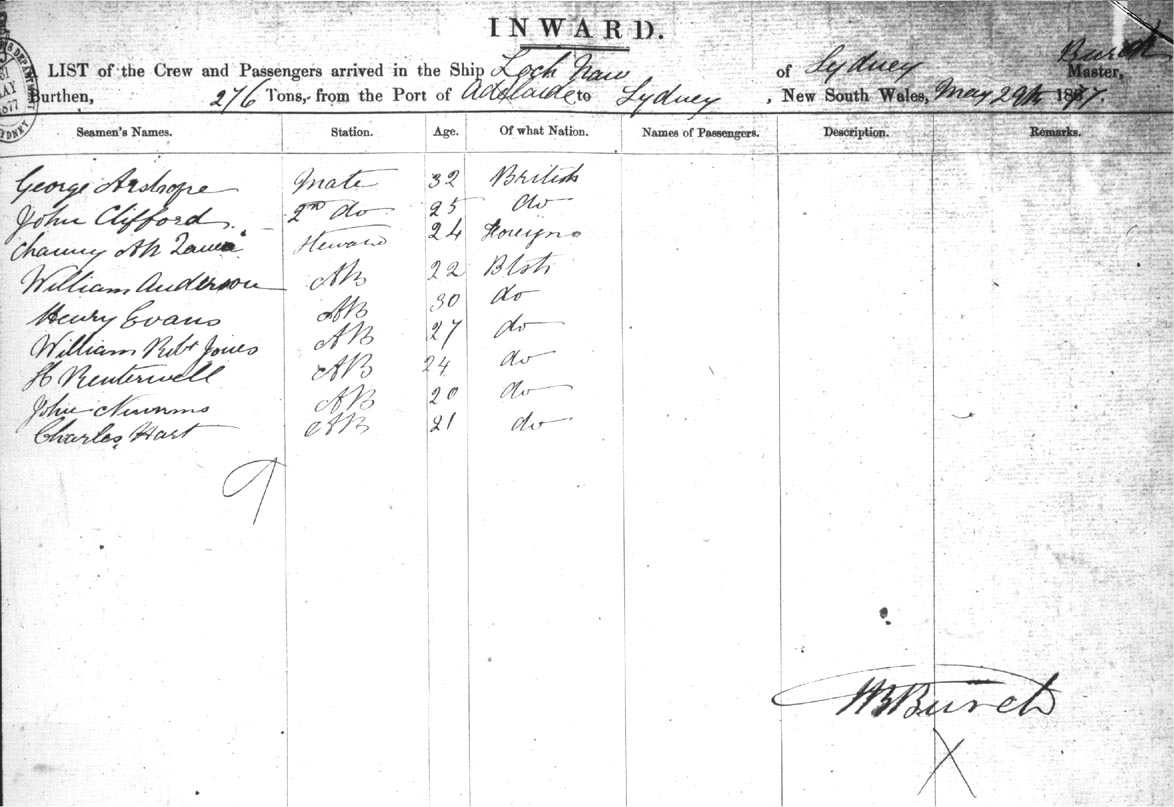 INWARD.
LIST of the Crew and Passengers arrived in the Ship Loch Naw of Sydney Burch Master,
Burthen, 276 Tons, from the Port of Adelaide to Sydney, New South Wales, May 29th 1877.
Seamen's Names. Station. Age. Of what Nation. Names of Passengers. Description. Remarks.
George Mate 32 British
John Clifford 2nd do 25 do
Ah Steward 24 Foreign
William Anderson AB 22 Btsh
Henry Evans AB 30 do
William Robt Jones AB 27 do
H AB 24 do
John AB 20 do
Charles Hart AB 21 do
9
Burch
X
MAY
1877
SYDNEY